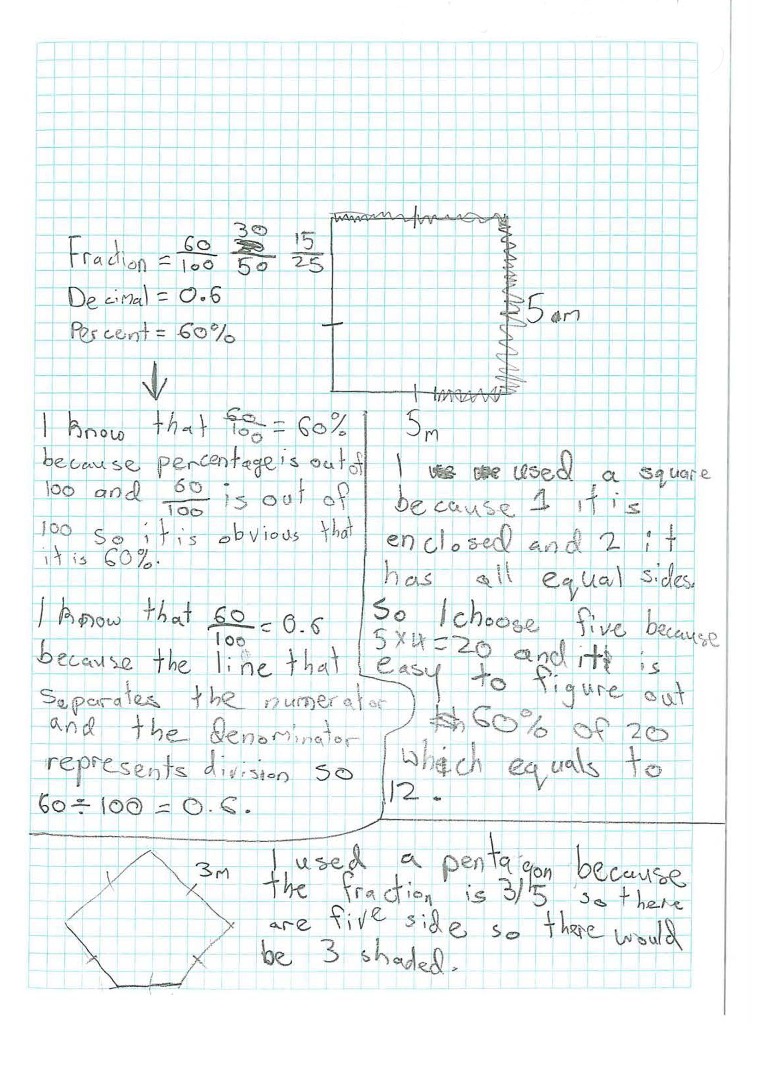 Fraction = 60/100 30/50 15/25
Decimal = 0.6
Percent = 60%
5 cm
5m
I know that 60/100 = 60%
because percentage is out of
100 and 60/100 is out of
100 so it is obvious that
it is 60%.
I know that 60/100 = 0.6
because the line that
separates the numerator
and the denominator
represents division so
60 ÷ 100 = 0.6.
I used a square
because 1 it is
enclosed and 2 it
has all equal sides.
So I choose five because
5 x 4 = 20 and it is
easy to figure out
60% of 20
which equals to
12.
3m
I used a pentagon because
the fraction is 3/5 so there
are five side so there would
be 3 shaded.